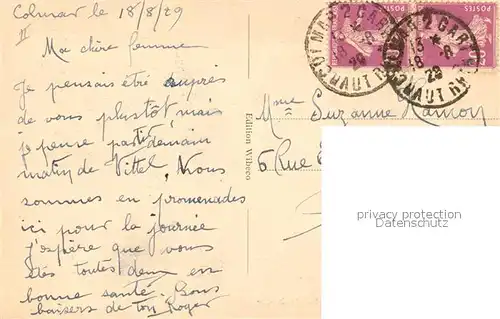 Colmar le 18/8/29
Ma chère femme
Je pensais être auprès
de vous plustôt, mais
je pense partir demain
matin de Vittel, Nous
sommes en promenades
ici pour la journée
j'espère que vous
êtes toutes deux en
bonne santé. Bons
baisers de ton Roger
Edition Wibeco
POSTES
POSTES
Mme Suzanne Hamon
6 Rue
privacy protection